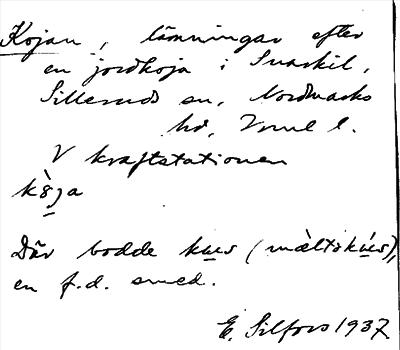 Kojan, lämningar efter
en jordkoja i Svarkil,
Sillerud sn, Nordmarks
hd, Vrml l.
V kraftstationen
kòja
Där bodde kus (màltskus),
en f.d. smed.
E. Silfors 1937